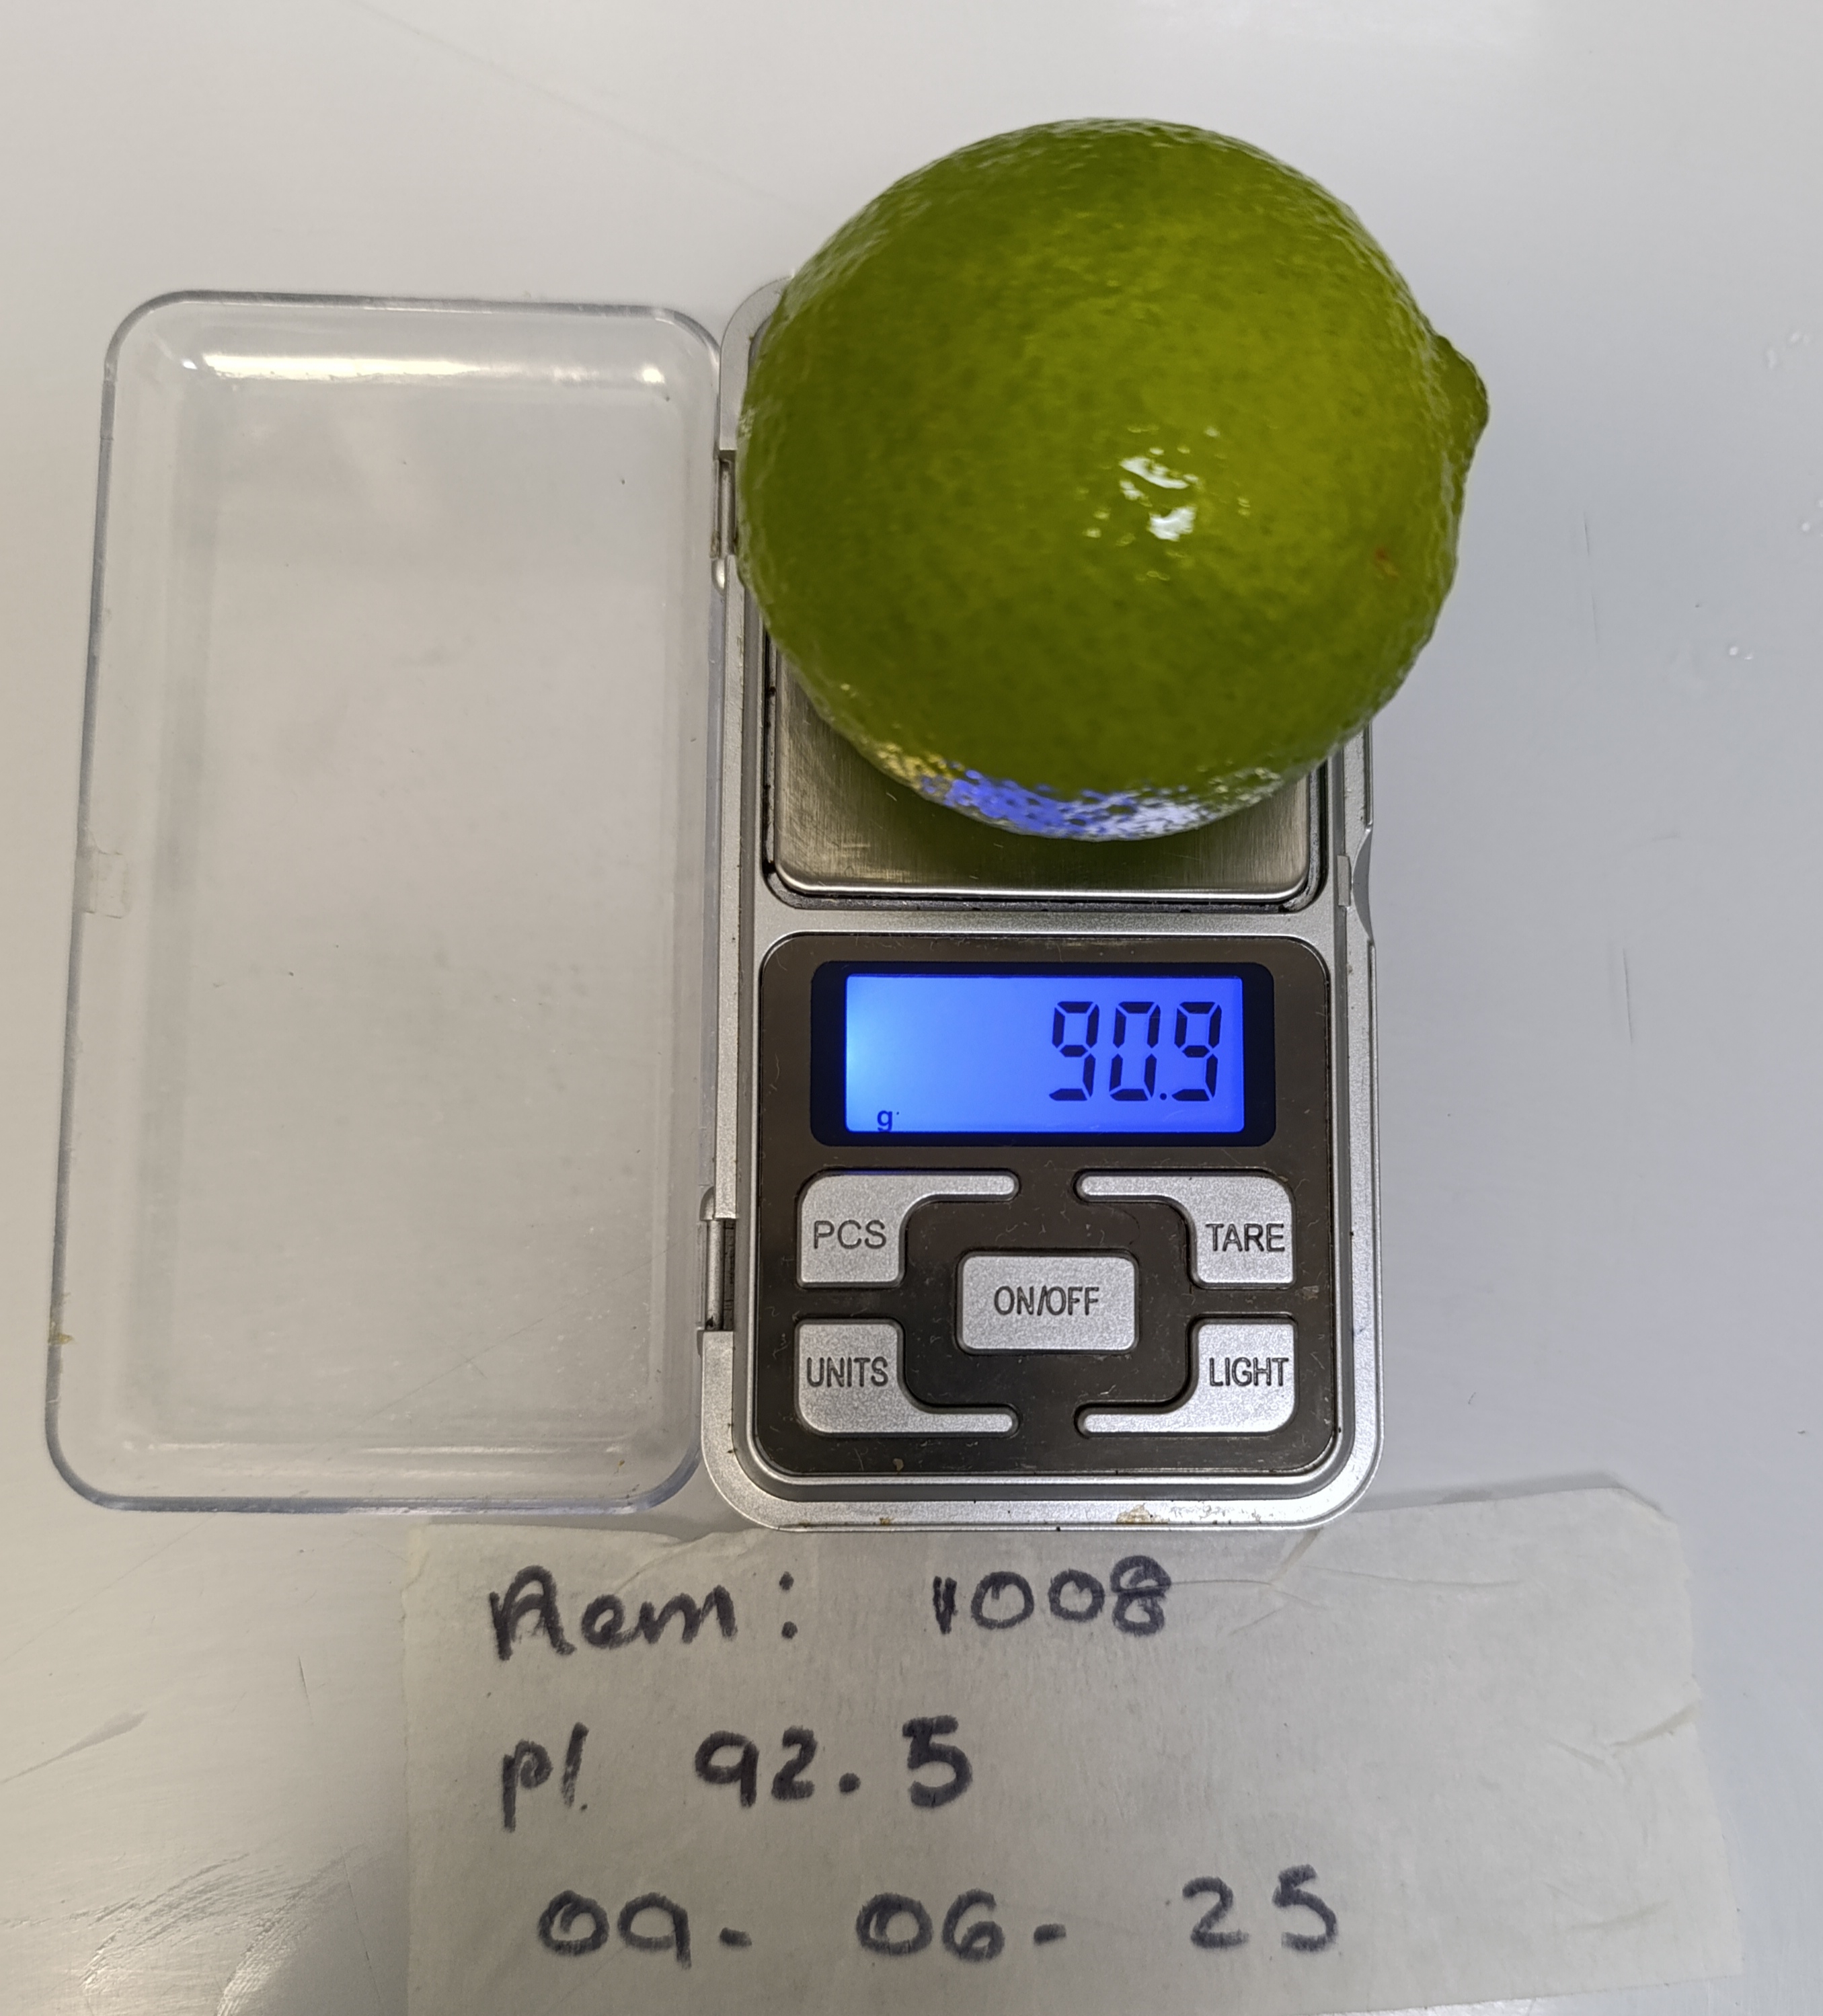 90.9
g
PCS TARE
ON/OFF
UNITS LIGHT
Rem: 1008
pl 92.5
09-06-25